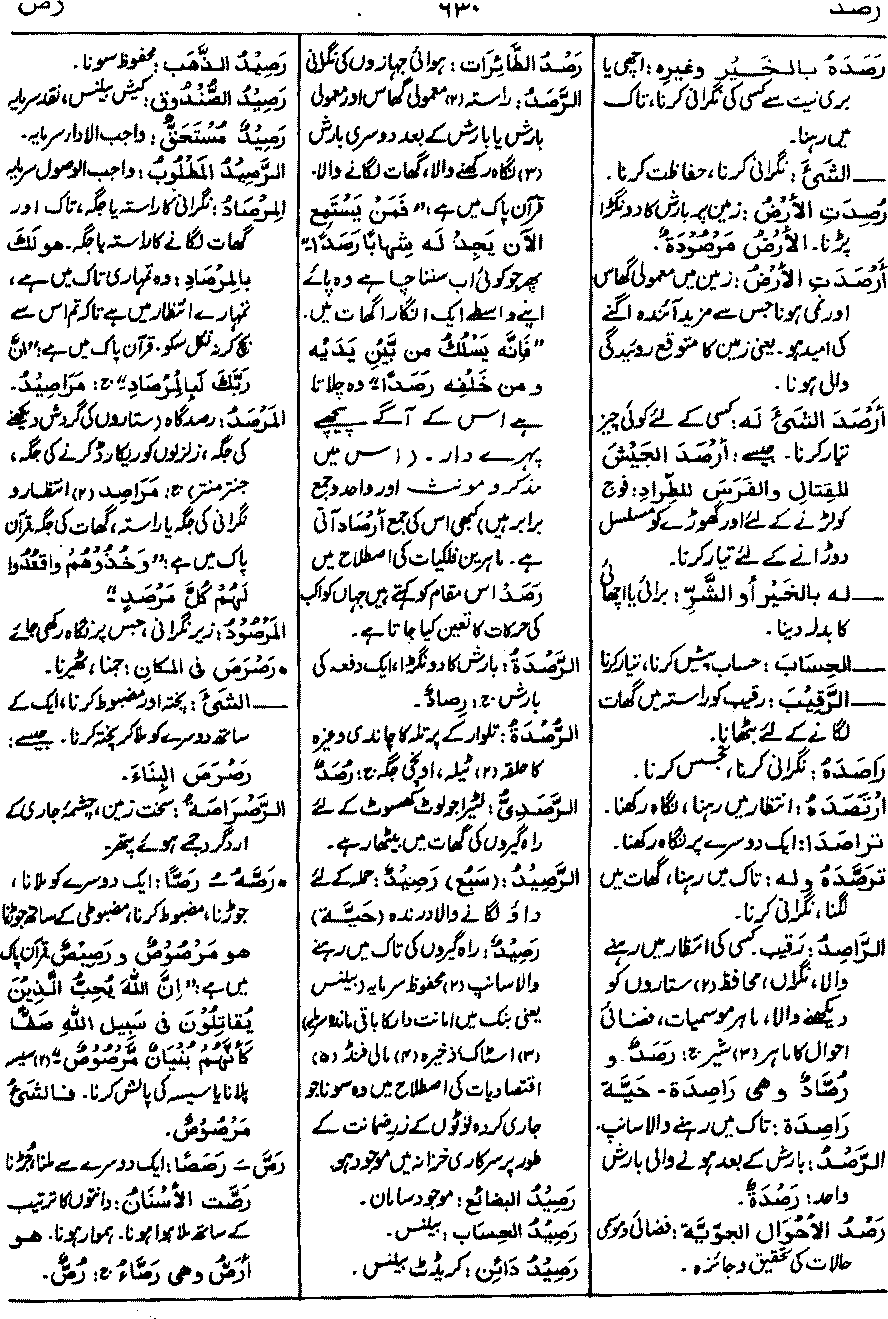 رصد
٦٣٠
رص
رَصَدَهُ بالخَيْرِ وغيرِه: اچھی یا
بری نیت سے کسی کی نگرانی کرنا، تاک
میں رہنا۔
— الشئَ: نگرانی کرنا، حفاظت کرنا۔
رُصِدَتِ الأرْضُ: زمین پر بارش کا دونگڑا
پڑنا۔ الأرضُ مَرْصُودَةٌ۔
أرْصَدَتِ الأرْضُ: زمین میں معمولی گھاس
اور نمی ہونا جس سے مزید آئندہ اگنے
کی امید ہو۔ یعنی زمین کا متوقع روئیدگی
والی ہونا۔
أرْصَدَ الشئَ لَه: کسی کے لئے کوئی چیز
تیار کرنا۔ جیسے: أرْصَدَ الجَيْشَ
للقِتالِ والفَرَسَ للطِّرادِ: فوج
کو لڑنے کے لئے اور گھوڑے کو مسلسل
دوڑانے کے لئے تیار کرنا۔
— له بالخَيْرِ أو الشَّرِّ: برائی یا اچھائی
کا بدلہ دینا۔
— الحِسابَ: حساب پیش کرنا، تیار کرنا
— الرَّقِيْبَ: رقیب کو راستہ میں گھات
لگانے کے لئے بٹھانا۔
رَاصَدَهُ: نگرانی کرنا، تجسس کرنا۔
ارْتَصَدَهُ: انتظار میں رہنا، نگاہ رکھنا۔
تراصَدَا: ایک دوسرے پر نگاہ رکھنا۔
تَرَصَّدَهُ وله: تاک میں رہنا، گھات میں
لگنا، نگرانی کرنا۔
الرَّاصِدُ: رقیب۔ کسی کی انتظار میں رہنے
والا، نگراں، محافظ (٢) ستاروں کو
دیکھنے والا، ماہر موسمیات، فضائی
احوال کا ماہر (٣) شیر ج: رَصَدٌ و
رُصَّادٌ وهى رَاصِدَة - حَيَّة
رَاصِدَة: تاک میں رہنے والا سانپ۔
الرَّصْدُ: بارش کے بعد ہونے والی بارش
واحد: رَصْدَةٌ۔
رَصْدُ الأحْوَالِ الجَوِّيَّة: فضائی و موسمی
حالات کی تحقیق و جائزہ۔
رَصْدُ الطَّائِرَات: ہوائی جہازوں کی نگرانی
الرَّصَدُ: راستہ (٢) معمولی گھاس اور معمولی
بارش یا بارش کے بعد دوسری بارش
(٣) نگاہ رکھنے والا، گھات لگانے والا۔
قرآن پاک میں ہے: "فَمَنْ يَسْتَمِعِ
الآنَ يَجِدْ لَه شِهابًا رَصَدًا"
پھر جو کوئی اب سننا چاہے وہ پائے
اپنے واسطے ایک انگارا گھات میں۔
"فَإنَّه يَسْلُكُ مِن بَيْنِ يَدَيْهِ
و مِن خَلْفِه رَصَدًا" وہ چلاتا
ہے اس کے آگے پیچھے
پہرے دار۔ (اس میں
مذکر و مونث اور واحد و جمع
برابر ہیں) کبھی اس کی جمع أرْصَاد آتی
ہے۔ ماہرین فلکیات کی اصطلاح میں
رَصَدُ اس مقام کو کہتے ہیں جہاں کواکب
کی حرکات کا تعین کیا جاتا ہے۔
الرَّصْدَةُ: بارش کا دونگڑا، ایک دفعہ کی
بارش ج: رِصادٌ۔
الرُّصْدَةُ: تلوار کے پرتلہ کا چاندی وغیرہ
کا حلقہ (٢) ٹیلہ، اونچی جگہ ج: رُصَدٌ
الرَّصَدِيُّ: لٹیرا جو لوٹ کھسوٹ کے لئے
راہ گیروں کی گھات میں بیٹھا رہے۔
الرَّصِيْدُ: (سَبُع) رَصِيْدٌ: حملہ کے لئے
داؤ لگانے والا درندہ (حَيَّة)
رَصِيْدٌ: راہ گیروں کی تاک میں رہنے
والا سانپ (٢) محفوظ سرمایہ (بیلنس
یعنی بنک میں امانت دار کا باقی ماندہ سرمایہ)
(٣) اسٹاک ذخیرہ (٤) مالی فنڈ (٥)
اقتصادیات کی اصطلاح میں وہ سونا جو
جاری کردہ نوٹوں کے زر ضمانت کے
طور پر سرکاری خزانہ میں موجود ہو۔
رَصِيْدُ البضائع: موجود سامان۔
رَصِيْدُ الحِسَاب: بیلنس۔
رَصِيْدُ دَائِن: کریڈٹ بیلنس۔
رَصِيْدُ الذَّهَب: محفوظ سونا۔
رَصِيْدُ الصُّنْدُوق: کیش بیلنس، نقد سرمایہ
رَصِيْدٌ مُسْتَحَقٌّ: واجب الادار سرمایہ۔
الرَّصِيْدُ المَطْلُوبُ: واجب الوصول سرمایہ
المِرْصَادُ: نگرانی کا راستہ یا جگہ، تاک اور
گھات لگانے کا راستہ یا جگہ۔ هو لَكَ
بالمِرْصَادِ: وہ تمہاری تاک میں ہے،
تمہارے انتظار میں ہے تاکہ تم اس سے
بچ کر نہ نکل سکو۔ قرآن پاک میں ہے: "إنَّ
رَبَّكَ لَبِالْمِرْصَادِ" ج: مَرَاصِيْدُ۔
المَرْصَدُ: رصد گاہ (ستاروں کی گردش دیکھنے
کی جگہ، زلزلوں کو ریکارڈ کرنے کی جگہ،
جنتر منتر) ج: مَرَاصِد (٢) انتظار و
نگرانی کی جگہ یا راستہ، گھات کی جگہ قرآن
پاک میں ہے: "وَخُذُوهُمْ وَاقْعُدُوا
لَهُمْ كُلَّ مَرْصَدٍ"
المَرْصُودُ: زیر نگرانی، جس پر نگاہ رکھی جائے
• رَصْرَصَ فى المكانِ: جمنا، ٹھیرنا۔
— الشئَ: پختہ اور مضبوط کرنا، ایک کے
ساتھ دوسرے کو ملا کر پختہ کرنا۔ جیسے:
رَصْرَصَ البِناءَ۔
الرَّصْرَاصَةُ: سخت زمین، چشمۂ جاری کے
ارد گرد جمے ہوئے پتھر۔
• رَصَّهُ ُ رَصًّا: ایک دوسرے کو ملانا،
جوڑنا، مضبوط کرنا، مضبوطی کے ساتھ جوڑنا
هو مَرْصُوصٌ و رَصِيصٌ قرآن پاک
میں ہے: "إنَّ اللهَ يُحِبُّ الَّذِيْنَ
يُقَاتِلُونَ فى سَبِيلِ اللهِ صَفًّا
كَأنَّهُمْ بُنْيَانٌ مَّرْصُوصٌ" (٢) سیسہ
پلانا یا سیسہ کی پالش کرنا۔ فالشئُ
مَرْصُوصٌ۔
رَصَّ َ رَصَصًا: ایک دوسرے سے ملنا، جُڑنا
رَصَّت الأسْنَانُ: دانتوں کا ترتیب
کے ساتھ ملا ہوا ہونا۔ ہموار ہونا۔ هو
أرَصُّ وهى رَصَّاءُ ج: رُصٌّ۔